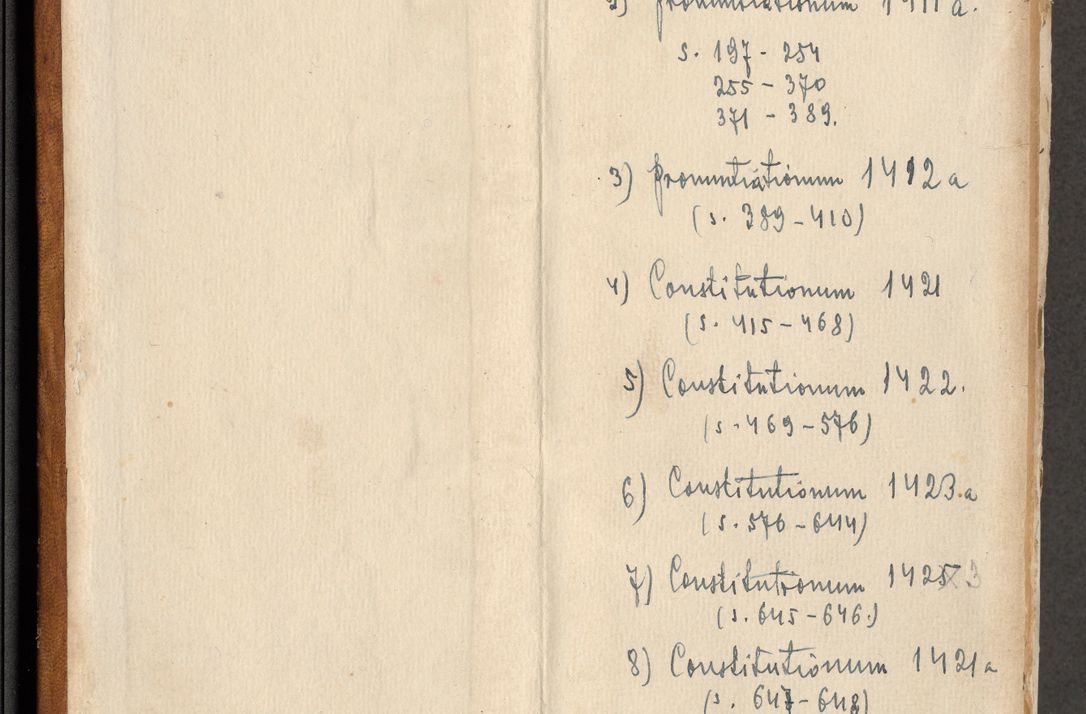 2) Pronuntiationum 1411 a.
s. 197 - 254
255 - 370
371 - 389.
3) Pronuntiationum 1412 a
(s. 389 - 410)
4) Constitutionum 1421
(s. 415 - 468)
5) Constitutionum 1422.
(s. 469 - 576)
6) Constitutionum 1423. a
(s. 576 - 644)
7) Constitutionum 1425 3
(s. 645 - 646.)
8) Constitutionum 1421 a
(s. 647 - 648)